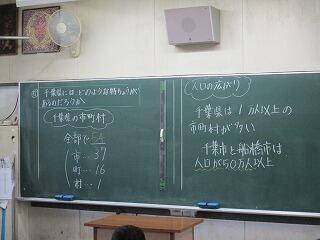 千葉県には、どのような特ちょうが
あるのだろうか。
千葉県の市町村
全部で 54
市…37
町…16
村…1
人口の広がり
千葉県は1万人以上の
市町村が多い
千葉市と船橋市は、
人口が50万人以上